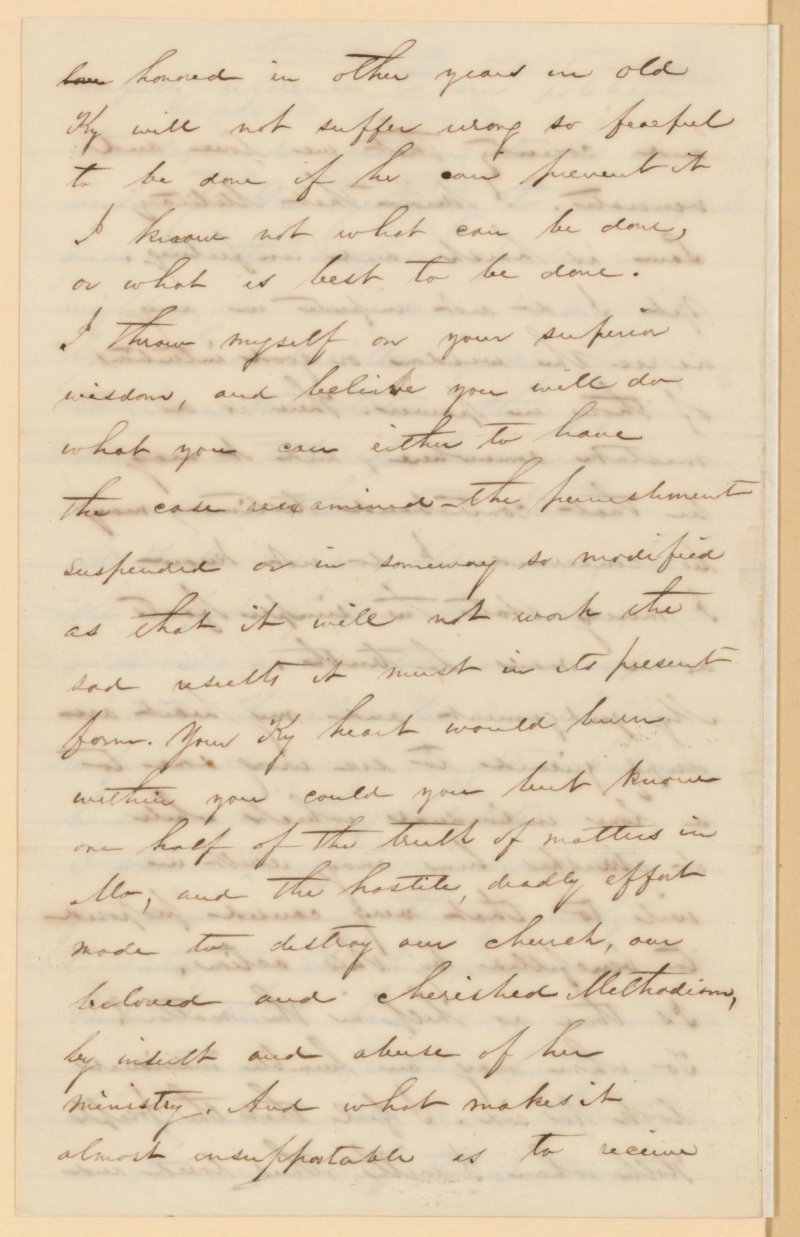 love honored in other years in old
Ky will not suffer wrong so fearful
to be done if he can prevent it
I know not what can be done,
or what is best to be done.
I throw myself on your superior
wisdom, and believe you will do
what you can either to have
the case reexamined – the punishment
suspended or in someway so modified
as that it will not work the
sad results it must in its present
form. Your Ky heart would burn
within you could you but know
one half of the truth of matters in
Mo, and the hostile, deadly effort
made to destroy our church, our
beloved and cherished Methodism,
by insult and abuse of her
ministry. And what makes it
almost insupportable is to receive